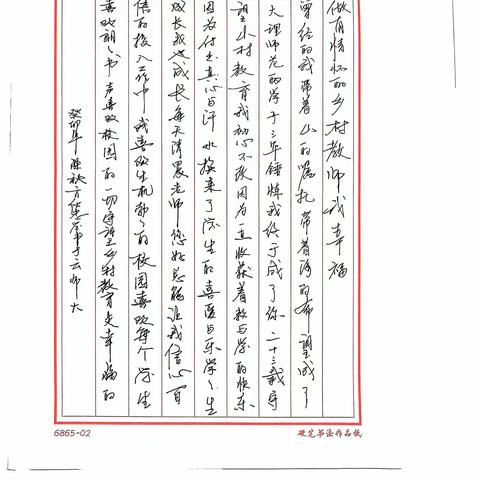 做有情怀的乡村教师我幸福
曾经的我带着山的嘱托带着海的希望成了
大理师范的学子三年锤炼我终于成了你二十三载守
望乡村教育我初心不改因为一直收获着教与学的快乐
因为付出真心与汗水换来了学生的喜爱与乐学学生
成长我也成长每天清晨老师您好总能让我信心百
倍的投入工作中我喜欢生机勃勃的校园喜欢每个学生
喜欢朗朗书声喜欢校园的一切守望乡村教育是幸福的
癸卯年陈 方 书于云师大
6865-02
硬笔书法作品纸